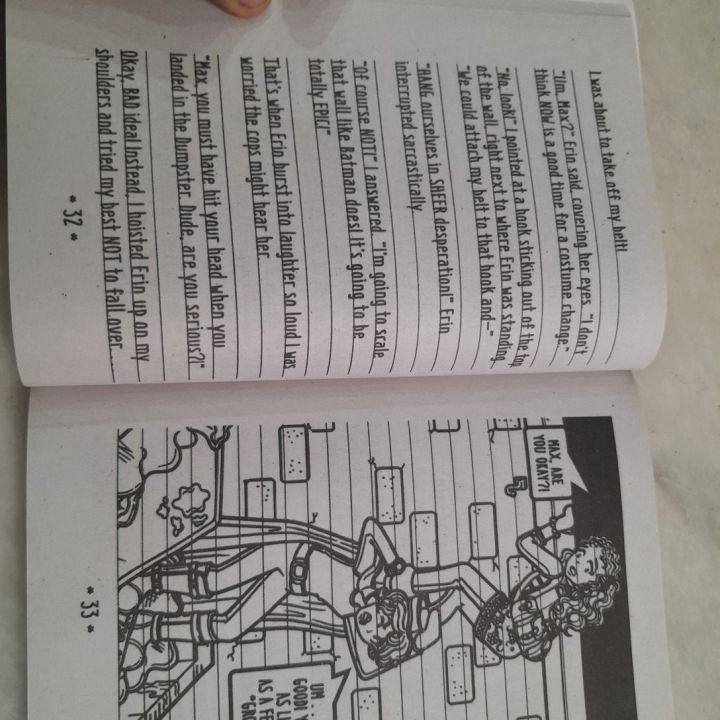 I was about to take off my belt!
"Um, Max?" Erin said, covering her eyes. "I don't
think NOW is a good time for a costume change."
"No, look!" I pointed at a hook sticking out of the top
of the wall, right next to where Erin was standing.
"We could attach my belt to that hook and—"
"HANG ourselves in SHEER desperation!" Erin
interrupted sarcastically.
"Of course NOT!" I answered. "I'm going to scale
that wall like Batman does! It's going to be
totally EPIC!"
That's when Erin burst into laughter so loud I was
worried the cops might hear her.
"Max, you must have hit your head when you
landed in the Dumpster. Dude, are you serious?!"
Okay, BAD idea! Instead, I hoisted Erin up on my
shoulders and tried my best NOT to fall over . . .
* 32 *
MAX, ARE
YOU OKAY?!
UM . .
GOOD!
AS
AS A
* 33 *